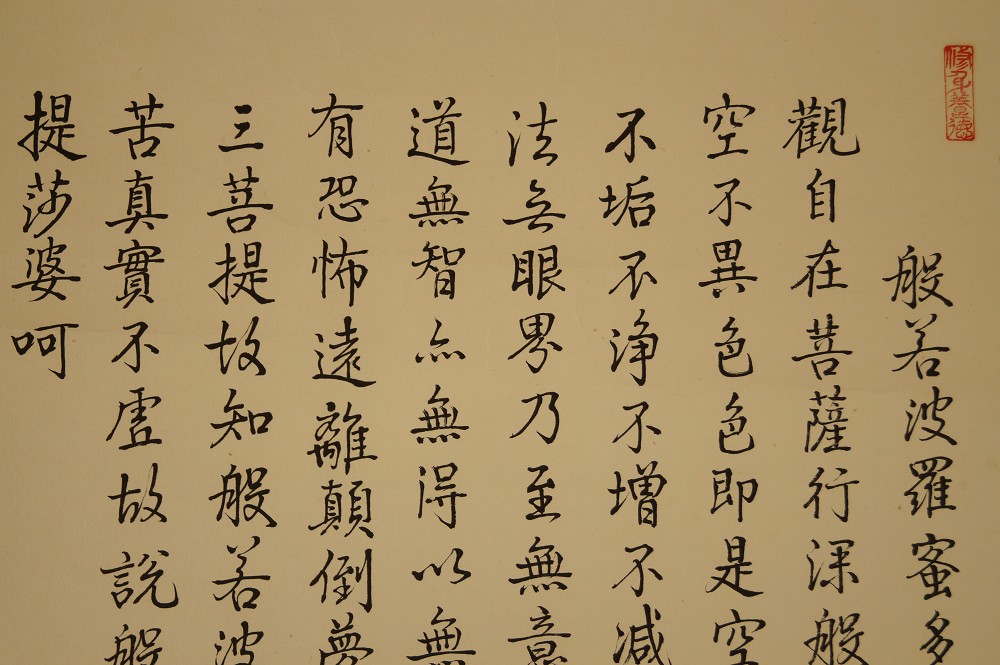 般若波羅蜜多
觀自在菩薩行深般
空不異色色即是空
不垢不淨不增不減
法無眼界乃至無意
道無智亦無得以無
有恐怖遠離顛倒夢
三菩提故知般若波
苦真實不虛故說般
提莎婆呵